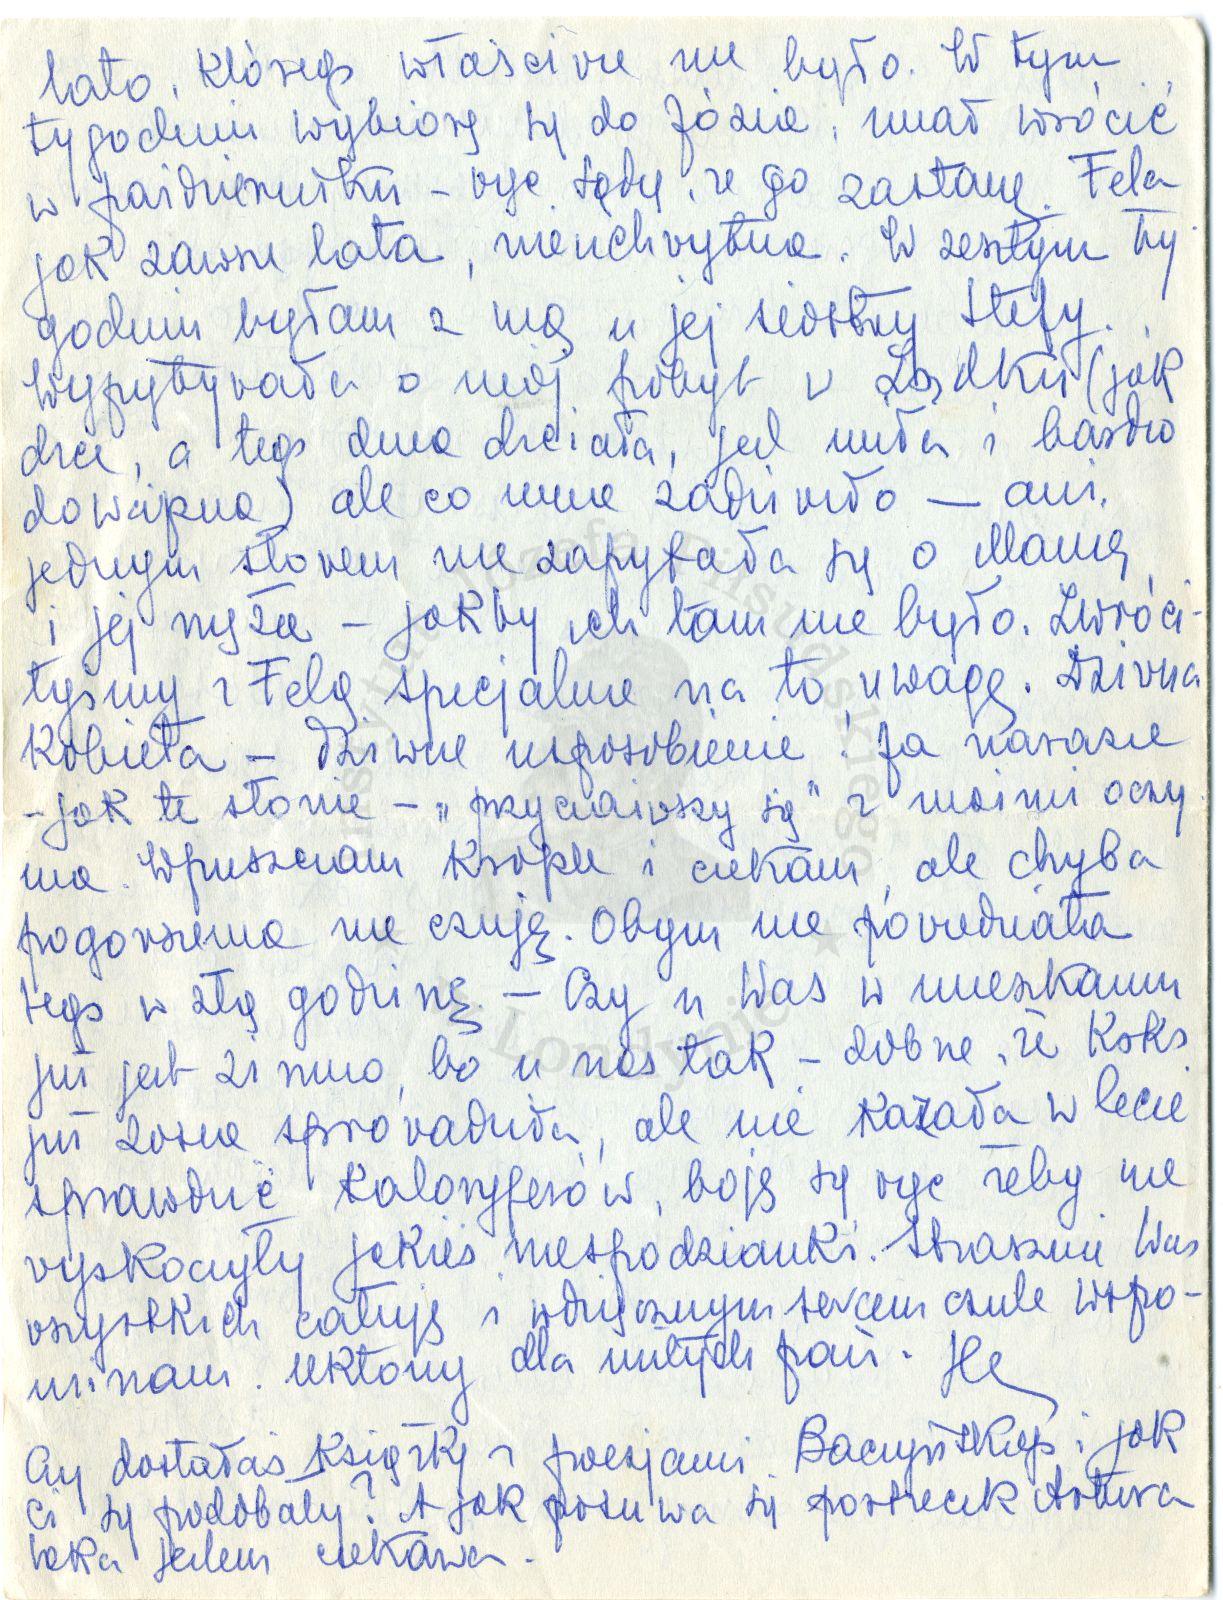 lato, którego właściwie nie było. W tym
tygodniu wybiorę się do Józia, miał wrócić
w październiku – więc sądzę, że go zastanę. Fela
jak zawsze lata, nieuchwytna. W zeszłym ty-
godniu byłam z nią u jej siostry Stefy.
Wypytywała o mój pobyt w (jak
chce, a tego dnia chciała, jest miła i bardzo
dowcipna) ale co mnie zadziwiło – ani
jednym słowem nie zapytała się o Manię
i jej męża – jakby ich tam nie było. Zwróci-
łyśmy z Felą specjalnie na to uwagę. Dziwna
kobieta – dziwne usposobienie. Ja narazie
– jak te słonie – „przyczaiwszy się" z moimi oczy
ma. Wpuszczam krople i czekam, ale chyba
pogorszenia nie czuję. Obym nie powiedziała
tego w złą godzinę. – Czy u Was w mieszkaniu
już jest zimno, bo u nas tak – dobrze, że Koks
już Zosia sprowadziła, ale nie kazała w lecie
sprawdzić kaloryferów, boję się więc żeby nie
wyskoczyły jakieś niespodzianki. Strasznie Was
wszystkich całuję i wdzięcznym sercem czule wspo-
minam. Ukłony dla miłych pań. He
Czy dostałaś książkę z poezjami Baczyńskiego i jak
Ci się podobały? A jak posuwa się portrecik Artura
jestem ciekawa.
Instytut Józefa Piłsudskiego
w Londynie